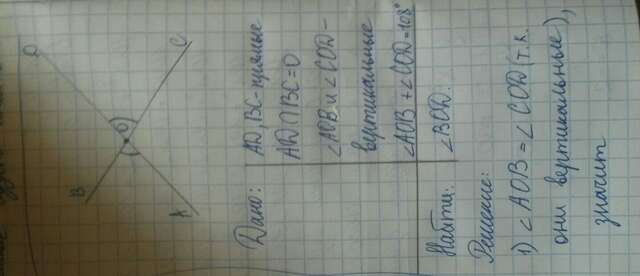 D
C
O
B
A
Дано: AD, BC - прямые
AD∩BC=O
∠AOB и ∠COD -
вертикальные
∠AOB + ∠COD = 108°
Найти: ∠BOD.
Решение:
1) ∠AOB = ∠COD (т.к.
они вертикальные),
значит